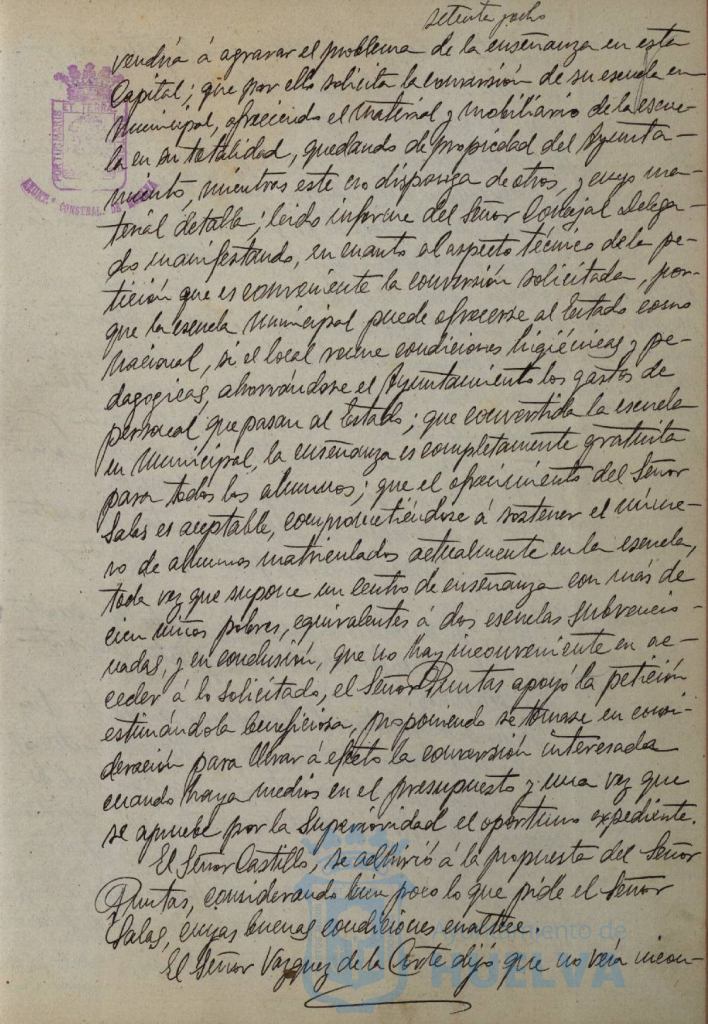 setenta y ocho
vendría á agravar el problema de la enseñanza en esta
Capital; que por ello solicita la conversión de su escuela en
Municipal, ofreciendo el material y mobiliario de la escue-
la en su totalidad, quedando de propiedad del Ayunta-
miento, mientras este no disponga de otros, y cuyo ma-
terial detalla; leido informe del Señor Concejal Delega-
do manifestando, en cuanto al aspecto técnico de la pe-
tición que es conveniente la conversión solicitada, por-
que la escuela Municipal puede ofrecerse al Estado como
Nacional, si el local reune condiciones higiénicas y pe-
dagogicas, ahorrándose el Ayuntamiento los gastos de
personal que pasan al Estado; que convertida la escuela
en Municipal, la enseñanza es completamente gratuita
para todos los alumnos; que el ofrecimiento del Señor
Salas es aceptable, comprometiéndose á sostener el núme-
ro de alumnos matriculados actualmente en la escuela,
toda vez que supone un centro de enseñanza con más de
cien niños pobres, equivalentes á dos escuelas subvencio-
nadas, y en conclusión, que no hay inconveniente en ac-
ceder á lo solicitado, el Señor Puntas apoyó la petición
estimándola beneficiosa, proponiendo se tomase en consi-
deración para llevar á efecto la conversión interesada
cuando haya medios en el presupuesto y una vez que
se apruebe por la Superioridad el oportuno expediente.
El Señor Castillo, se adhirió á la propuesta del Señor
Puntas, considerando bien poco lo que pide el Señor
Salas, cuyas buenas condiciones enaltece.
El Señor Vazquez de la Corte dijo que no veía incon-
Ayuntamiento de
HUELVA